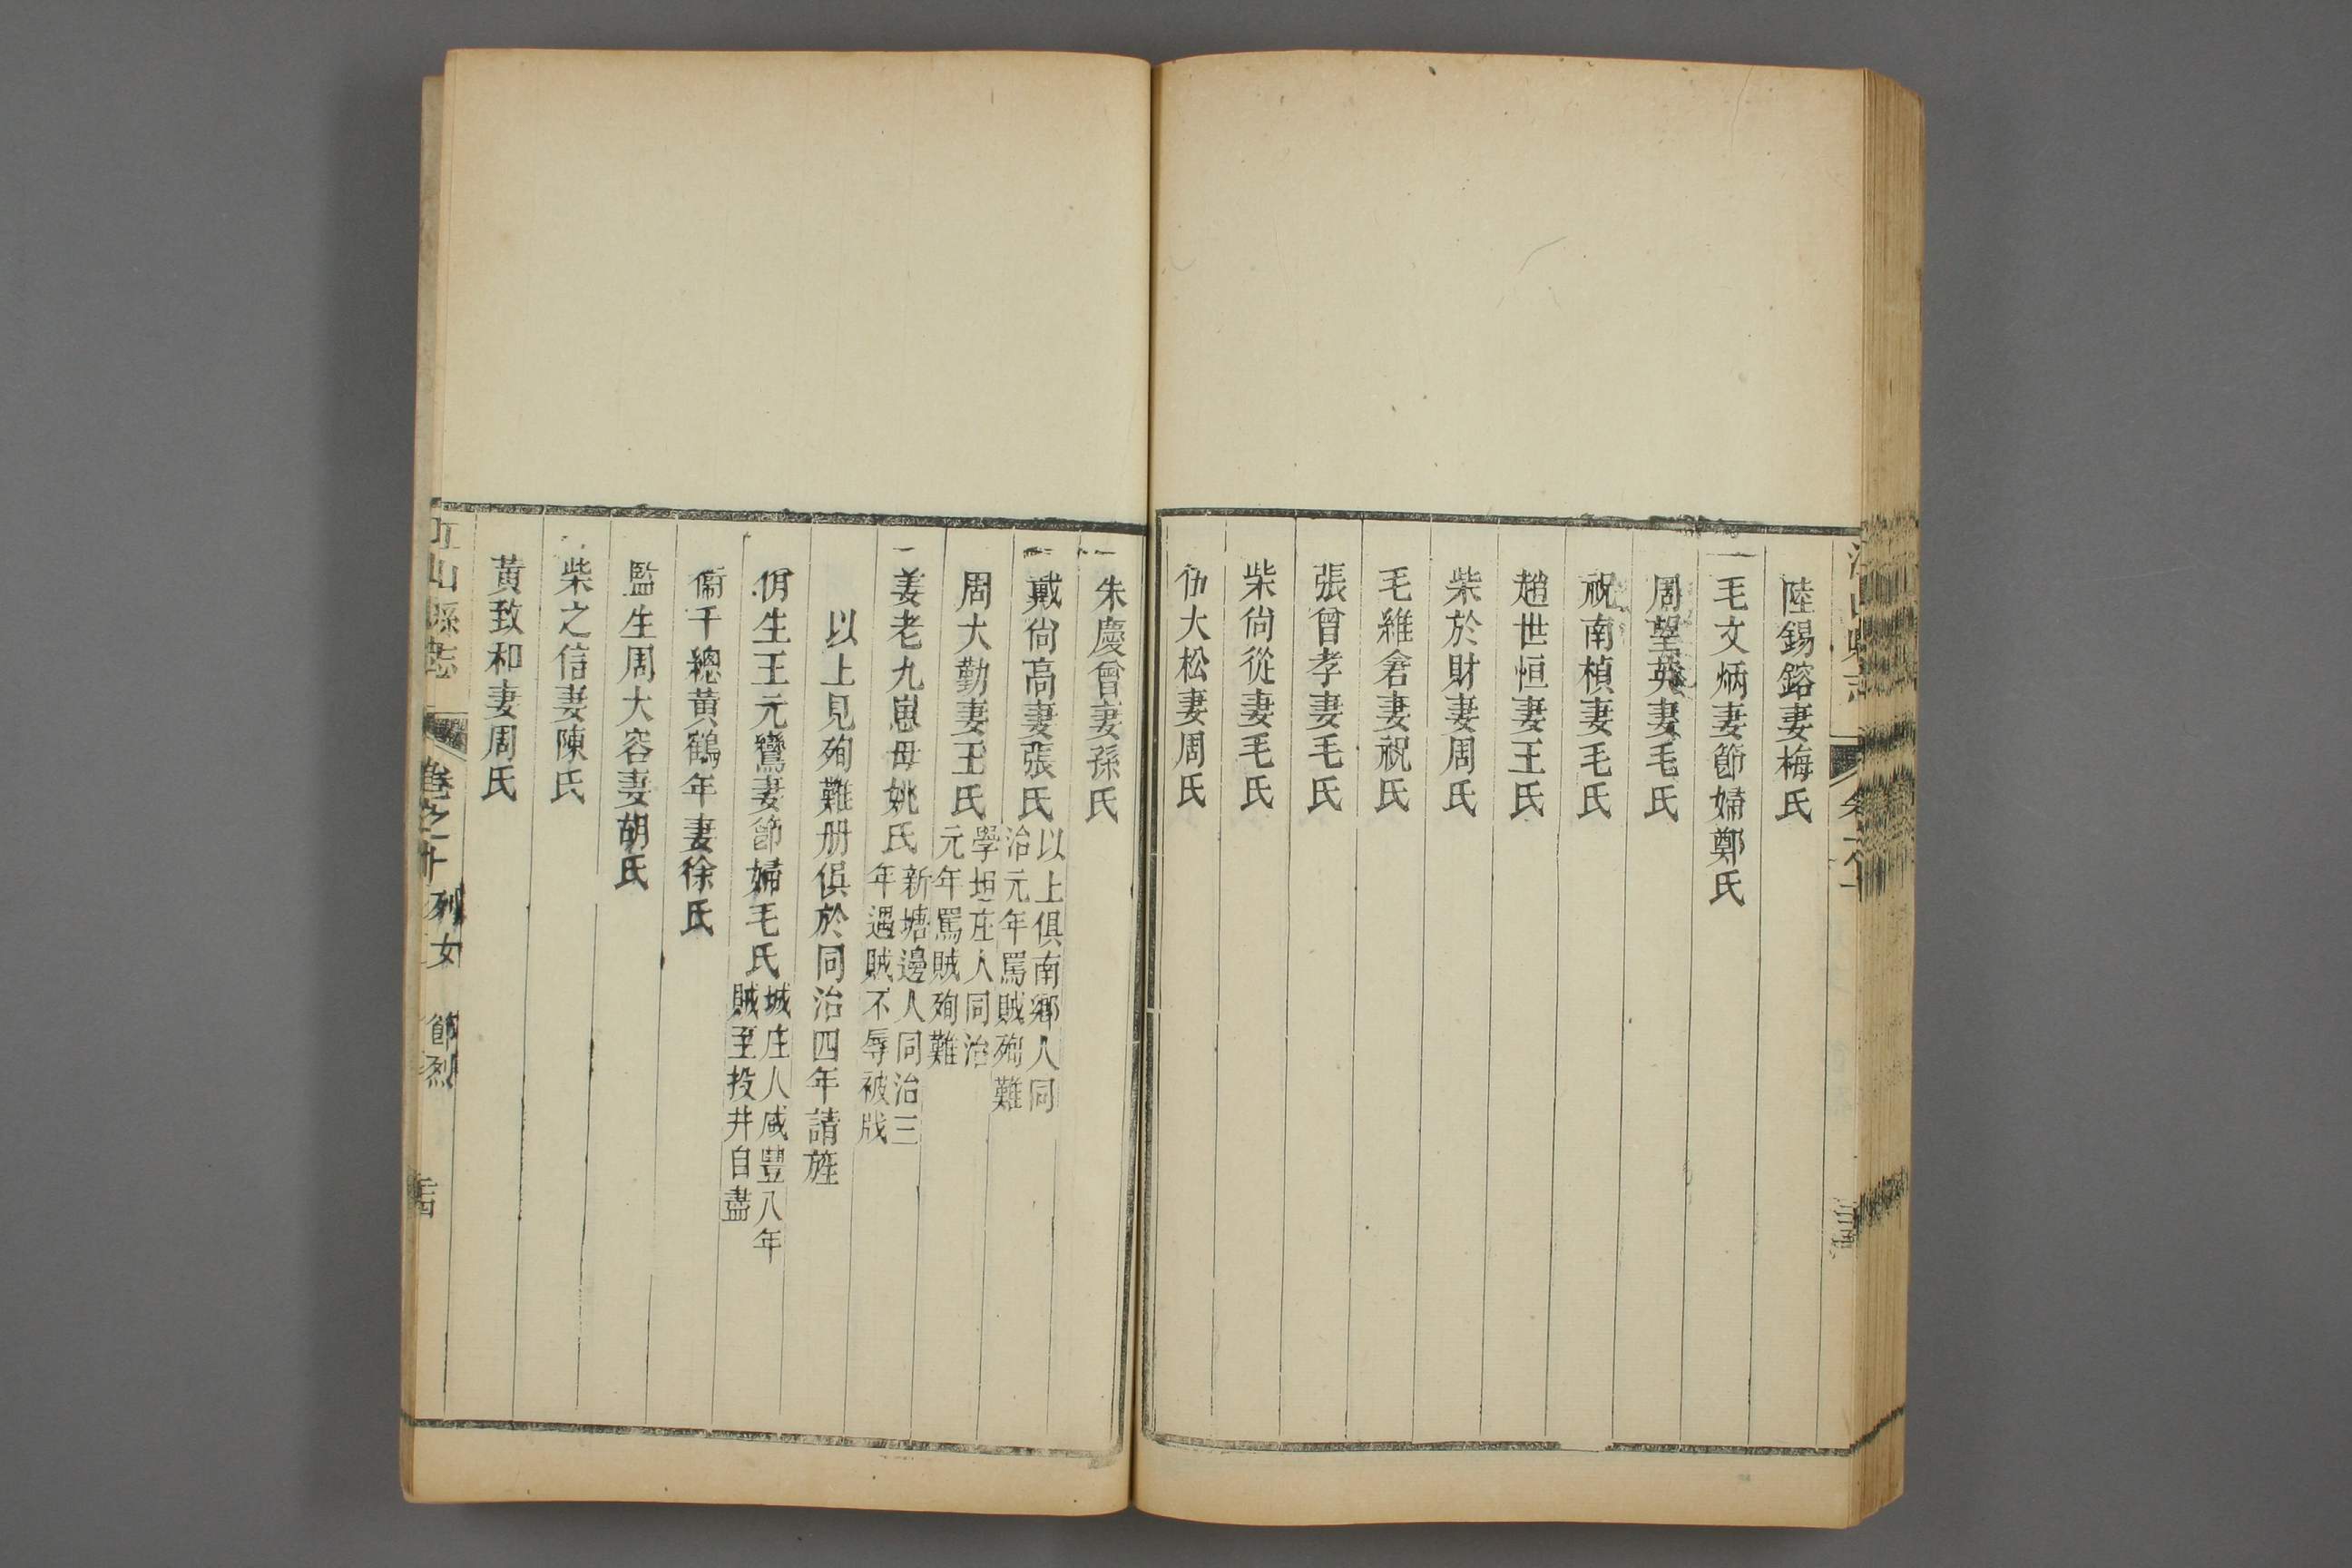 陸錫鎔妻梅氏
毛文炳妻節婦鄭氏
周望英妻毛氏
祝南楨妻毛氏
趙世恒妻王氏
柴於財妻周氏
毛維倉妻祝氏
張曾孝妻毛氏
柴尙從妻毛氏
大松妻周氏
朱慶曾妻孫氏
戴尙高妻張氏以上俱南鄉人同治元年罵賊殉難
周大勤妻王氏學坦庄人同治元年罵賊殉難
姜老九崽母姚氏新塘邊人同治三年遇賊不辱被戕
以上見殉難册俱於同治四年請旌
佾生王元鸞妻節婦毛氏城庄人咸豐八年賊至投井自盡
備千總黃鶴年妻徐氏
監生周大容妻胡氏
柴之信妻陳氏
黃致和妻周氏
江山縣志 卷之十 列女 節烈